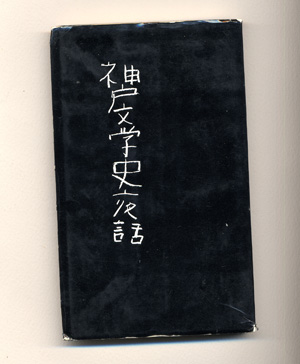 神戸文学史夜話